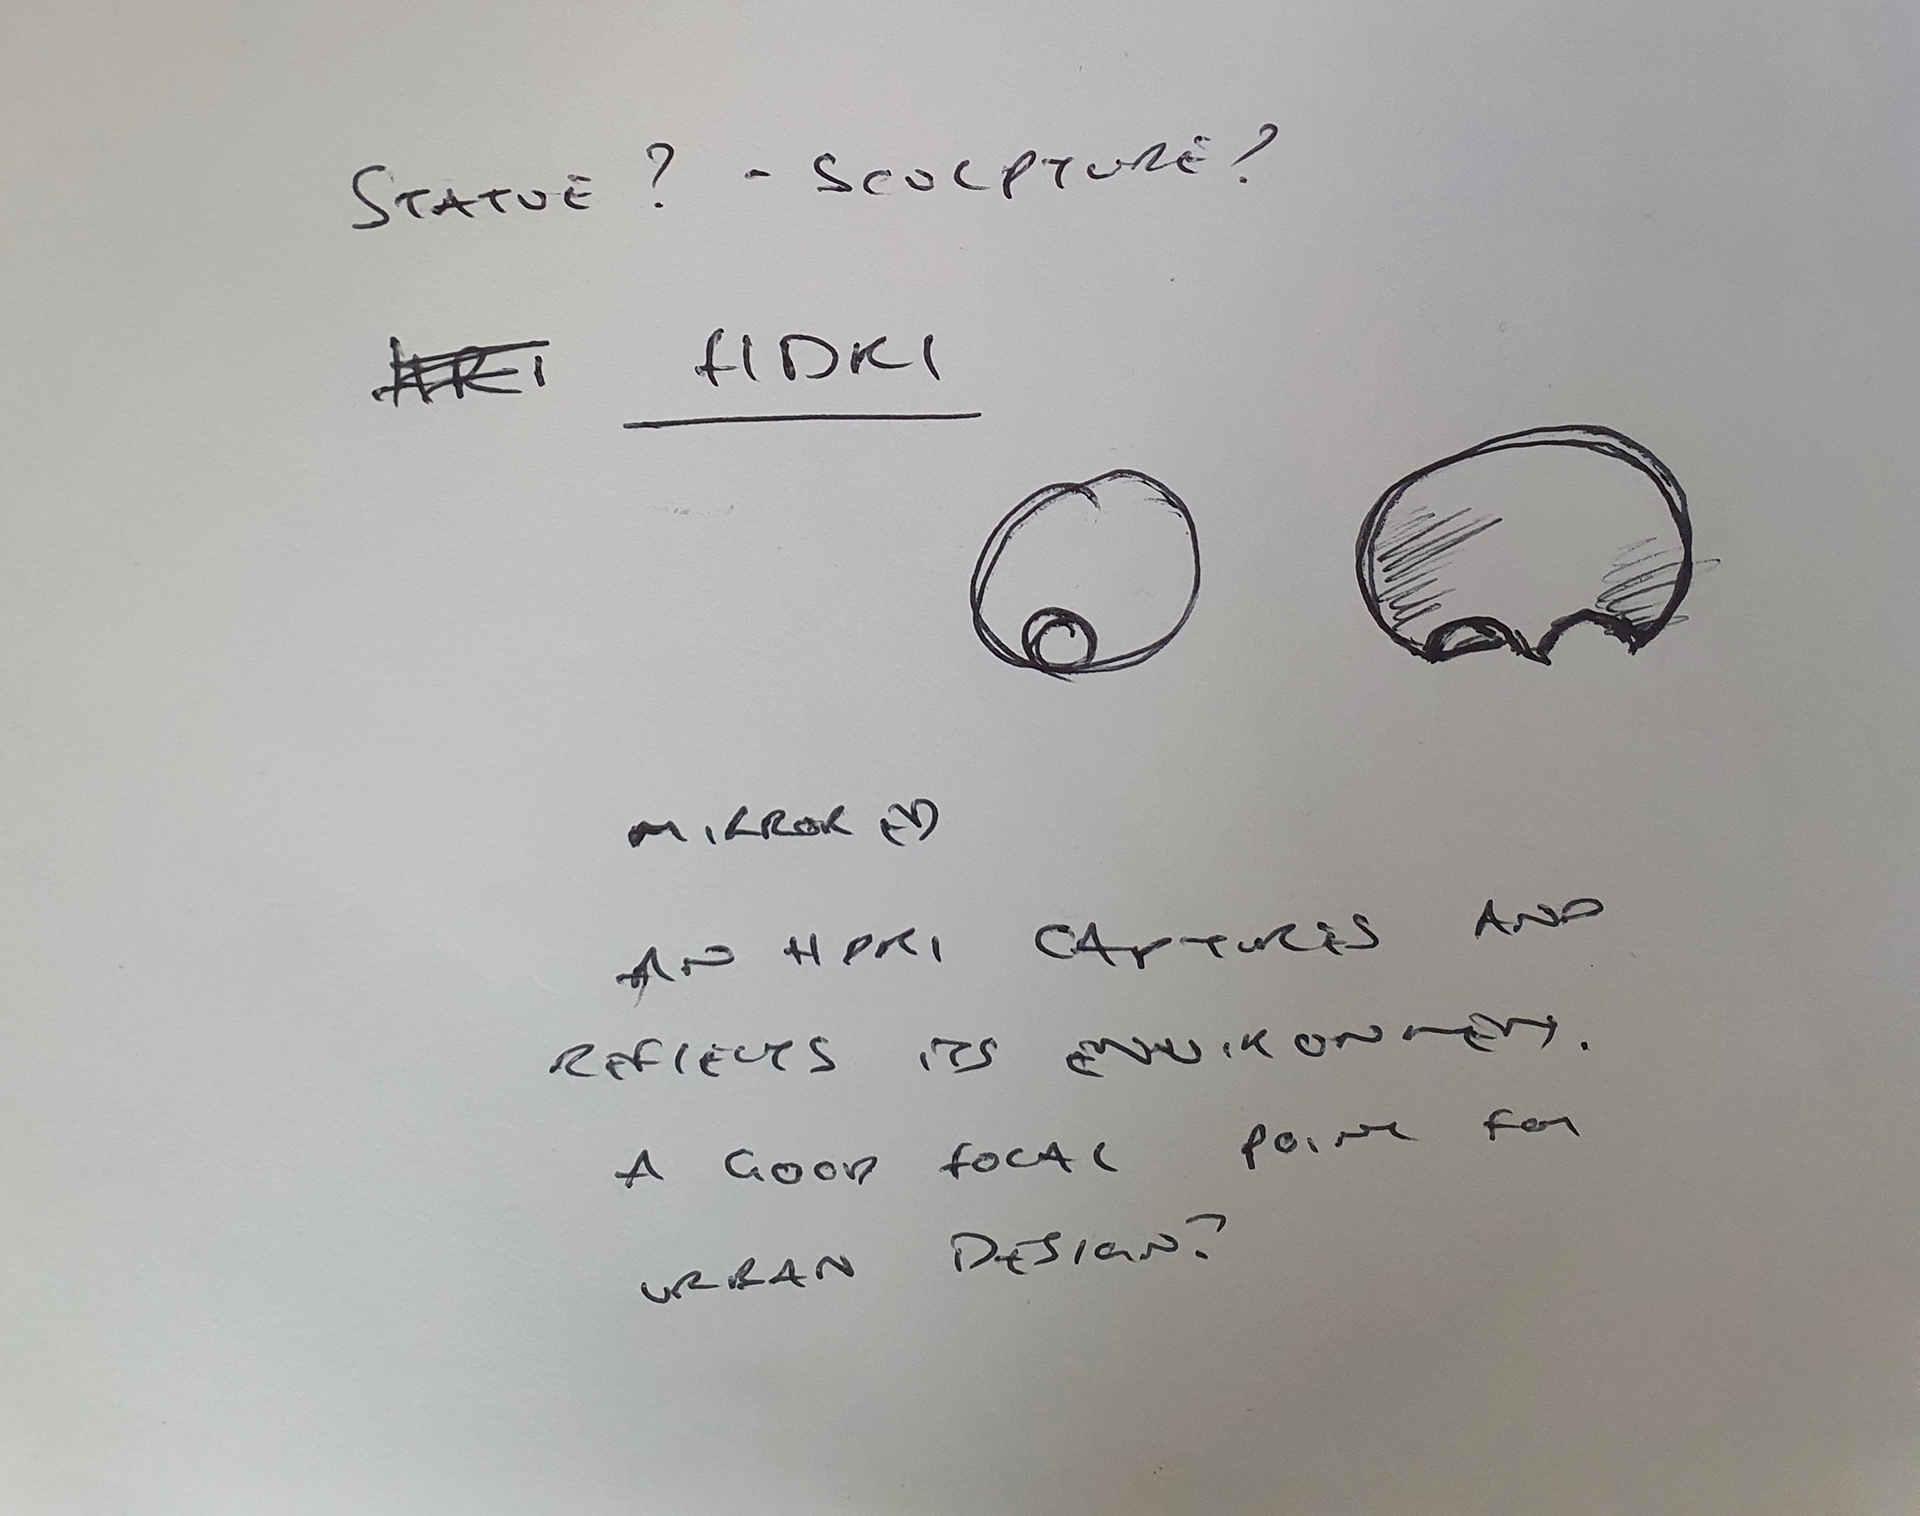 STATUE? - SCULPTURE?
HDRI
MIRRORED
AN HDRI CAPTURES AND
REFLECTS ITS ENVIRONMENT.
A GOOD FOCAL POINT FOR
URBAN DESIGN?